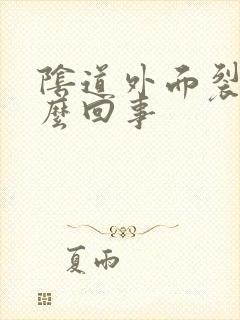 陰道外面裂
麼回事
夏雨